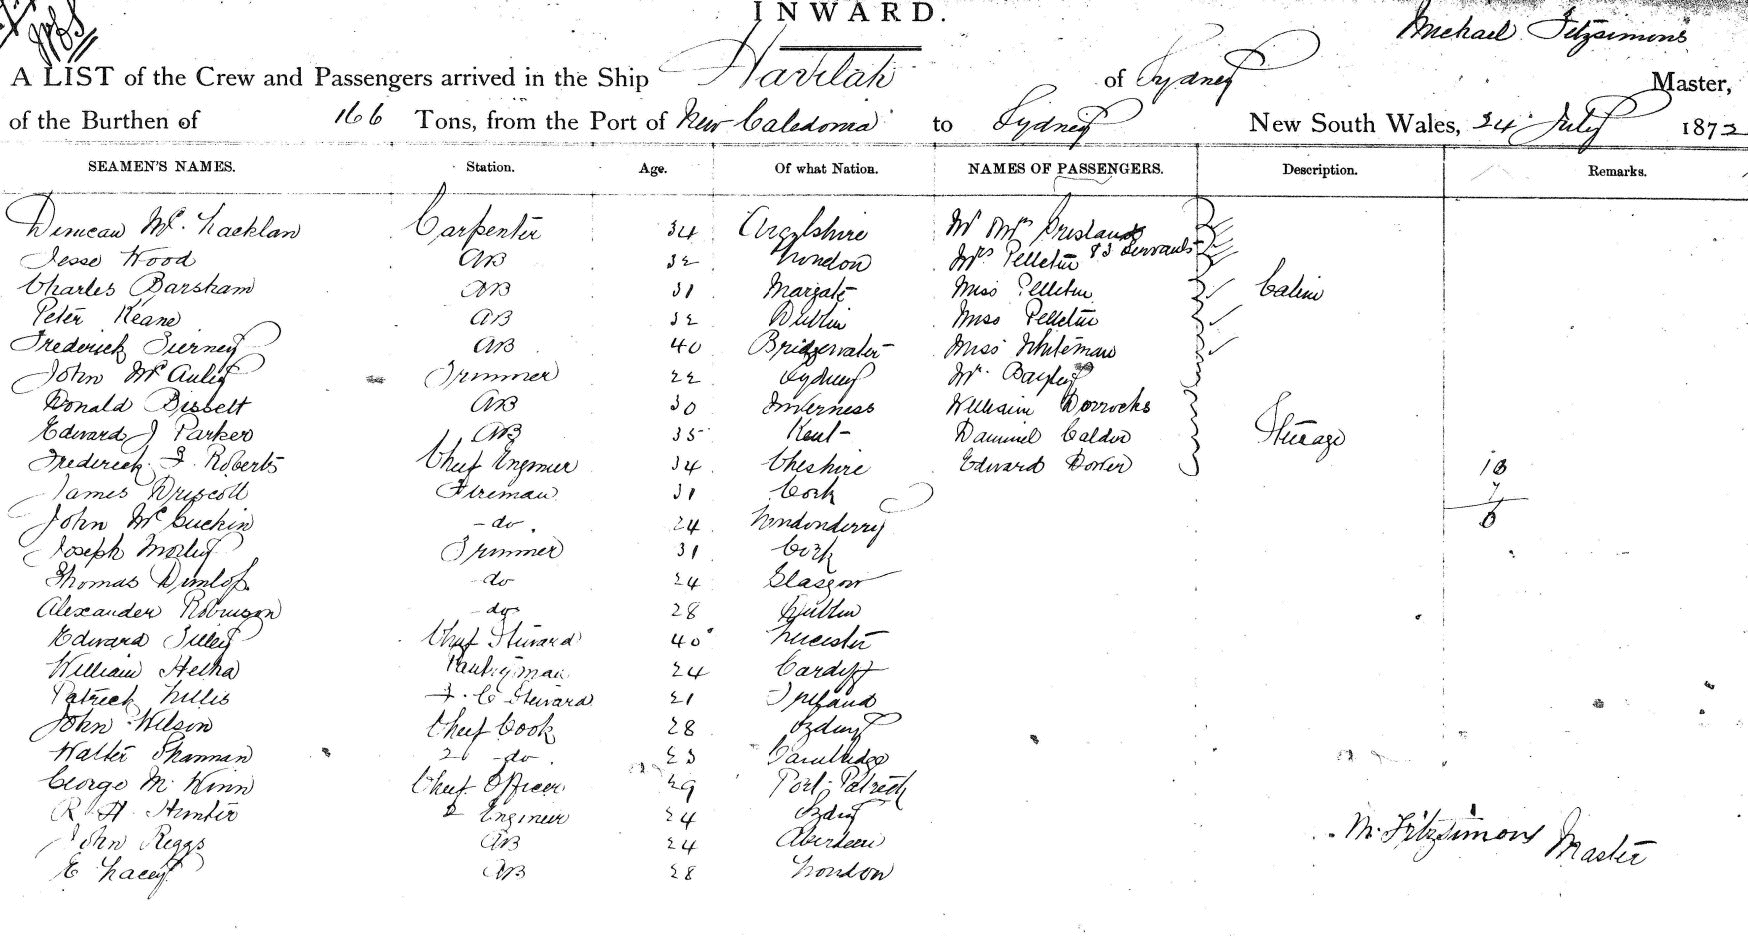 INWARD.
Michael Fitzsimons
A LIST of the Crew and Passengers arrived in the Ship Havilah of Sydney Master,
of the Burthen of 166 Tons, from the Port of New Caledonia to Sydney New South Wales, 24 July 1872
SEAMEN'S NAMES. Station. Age. Of what Nation. NAMES OF PASSENGERS. Description. Remarks.
Duncan Mc Lachlan Carpenter 34 Argylshire Mr & Mrs
Jesse Wood AB 32 London Mrs Pelletin & 3 Servants
Charles Barsham AB 31 Margate Miss Pelletin Cabin
Peter Keane AB 32 Dublin Miss Pelletin
Frederick Tierney AB 40 Bridgewater Miss Whiteman
John McAuley Trimmer 22 Sydney Mr. Bayley
Donald Bissett AB 30 Inverness William Dorrocks
Edward J Parker AB 35 Kent Danniel Calder Sturage
Frederick F. Roberts Chief Engineer 34 Cheshire Edward Dower 18
James Driscoll Fireman 31 Cork 7
John McCuchin - do. 24 Londonderry
Joseph Morley Trimmer 31 Cork
Thomas Dunlop do 24 Glasgow
Alexander Robinson - do 28 Dublin
Edward Tilley Chief Steward 40 Leicester
William Pantryman 24 Cardiff
Patrick Lillis F. C Steward 21 Ireland
John Wilson Chief Cook 28 Sydney
Walter Shannan 2 do. 23 Cambridge
George M. Winn Chief Officer 29 Port Patrick
R H Hunter 2 Engineer 24 Sydney
John Riggs AB 24 Aberdeen M. Fitzsimons Master
E Lacey AB 28 London